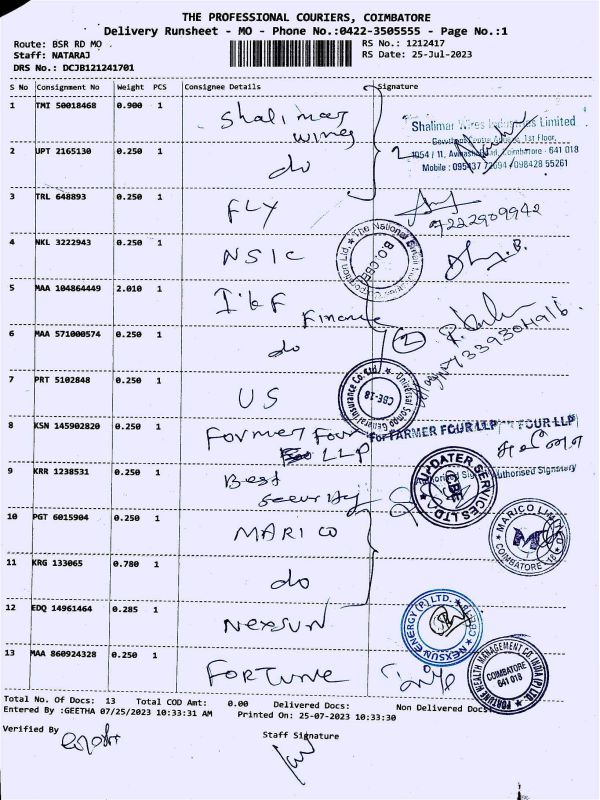 THE PROFESSIONAL COURIERS, COIMBATORE
Delivery Runsheet - MO - Phone No.:0422-3505555 - Page No.:1
Route: BSR RD MO
RS No.: 1212417
Staff: NATARAJ
RS Date: 25-Jul-2023
DRS No.: DCJB121241701
S No Consignment No Weight PCS Consignee Details Signature
1 TMI 50018468 0.900 1 Shalimar wires
Shalimar Wires Industries Limited
1st Floor,
1054 / 11, Avinashi Road, Coimbatore - 641 018
Mobile : 095437 72694 / 098428 55261
2 UPT 2165130 0.250 1 do 2
3 TRL 648893 0.250 1 FLY
7222909942
4 NKL 3222943 0.250 1 NSIC
5 MAA 104864449 2.010 1 I&F Finance
6 MAA 571000574 0.250 1 do 2
7 PRT 5102848 0.250 1 US
Universal Sompo General Insurance Co. Ltd. CBE-18
8 KSN 145902820 0.250 1 Former Four LLP
For FARMER FOUR LLP FOUR LLP
Authorised Signatory
9 KRR 1238531 0.250 1 Best security
UPDATER SERVICES LTD CBE
10 PGT 6015904 0.250 1 MARICO
MARICO LIMITED COIMBATORE
11 KRG 133065 0.780 1 do
12 EDQ 14961464 0.285 1 NEXSUN
NEXSUN ENERGY (P) LTD.
13 MAA 860924328 0.250 1 FORTUNE
FORTUNE HEALTH MANAGEMENT CO. INDIA (P) LTD. COIMBATORE 641 018
Total No. Of Docs: 13 Total COD Amt: 0.00 Delivered Docs: Non Delivered Docs:
Entered By :GEETHA 07/25/2023 10:33:31 AM Printed On: 25-07-2023 10:33:30
Verified By Staff Signature